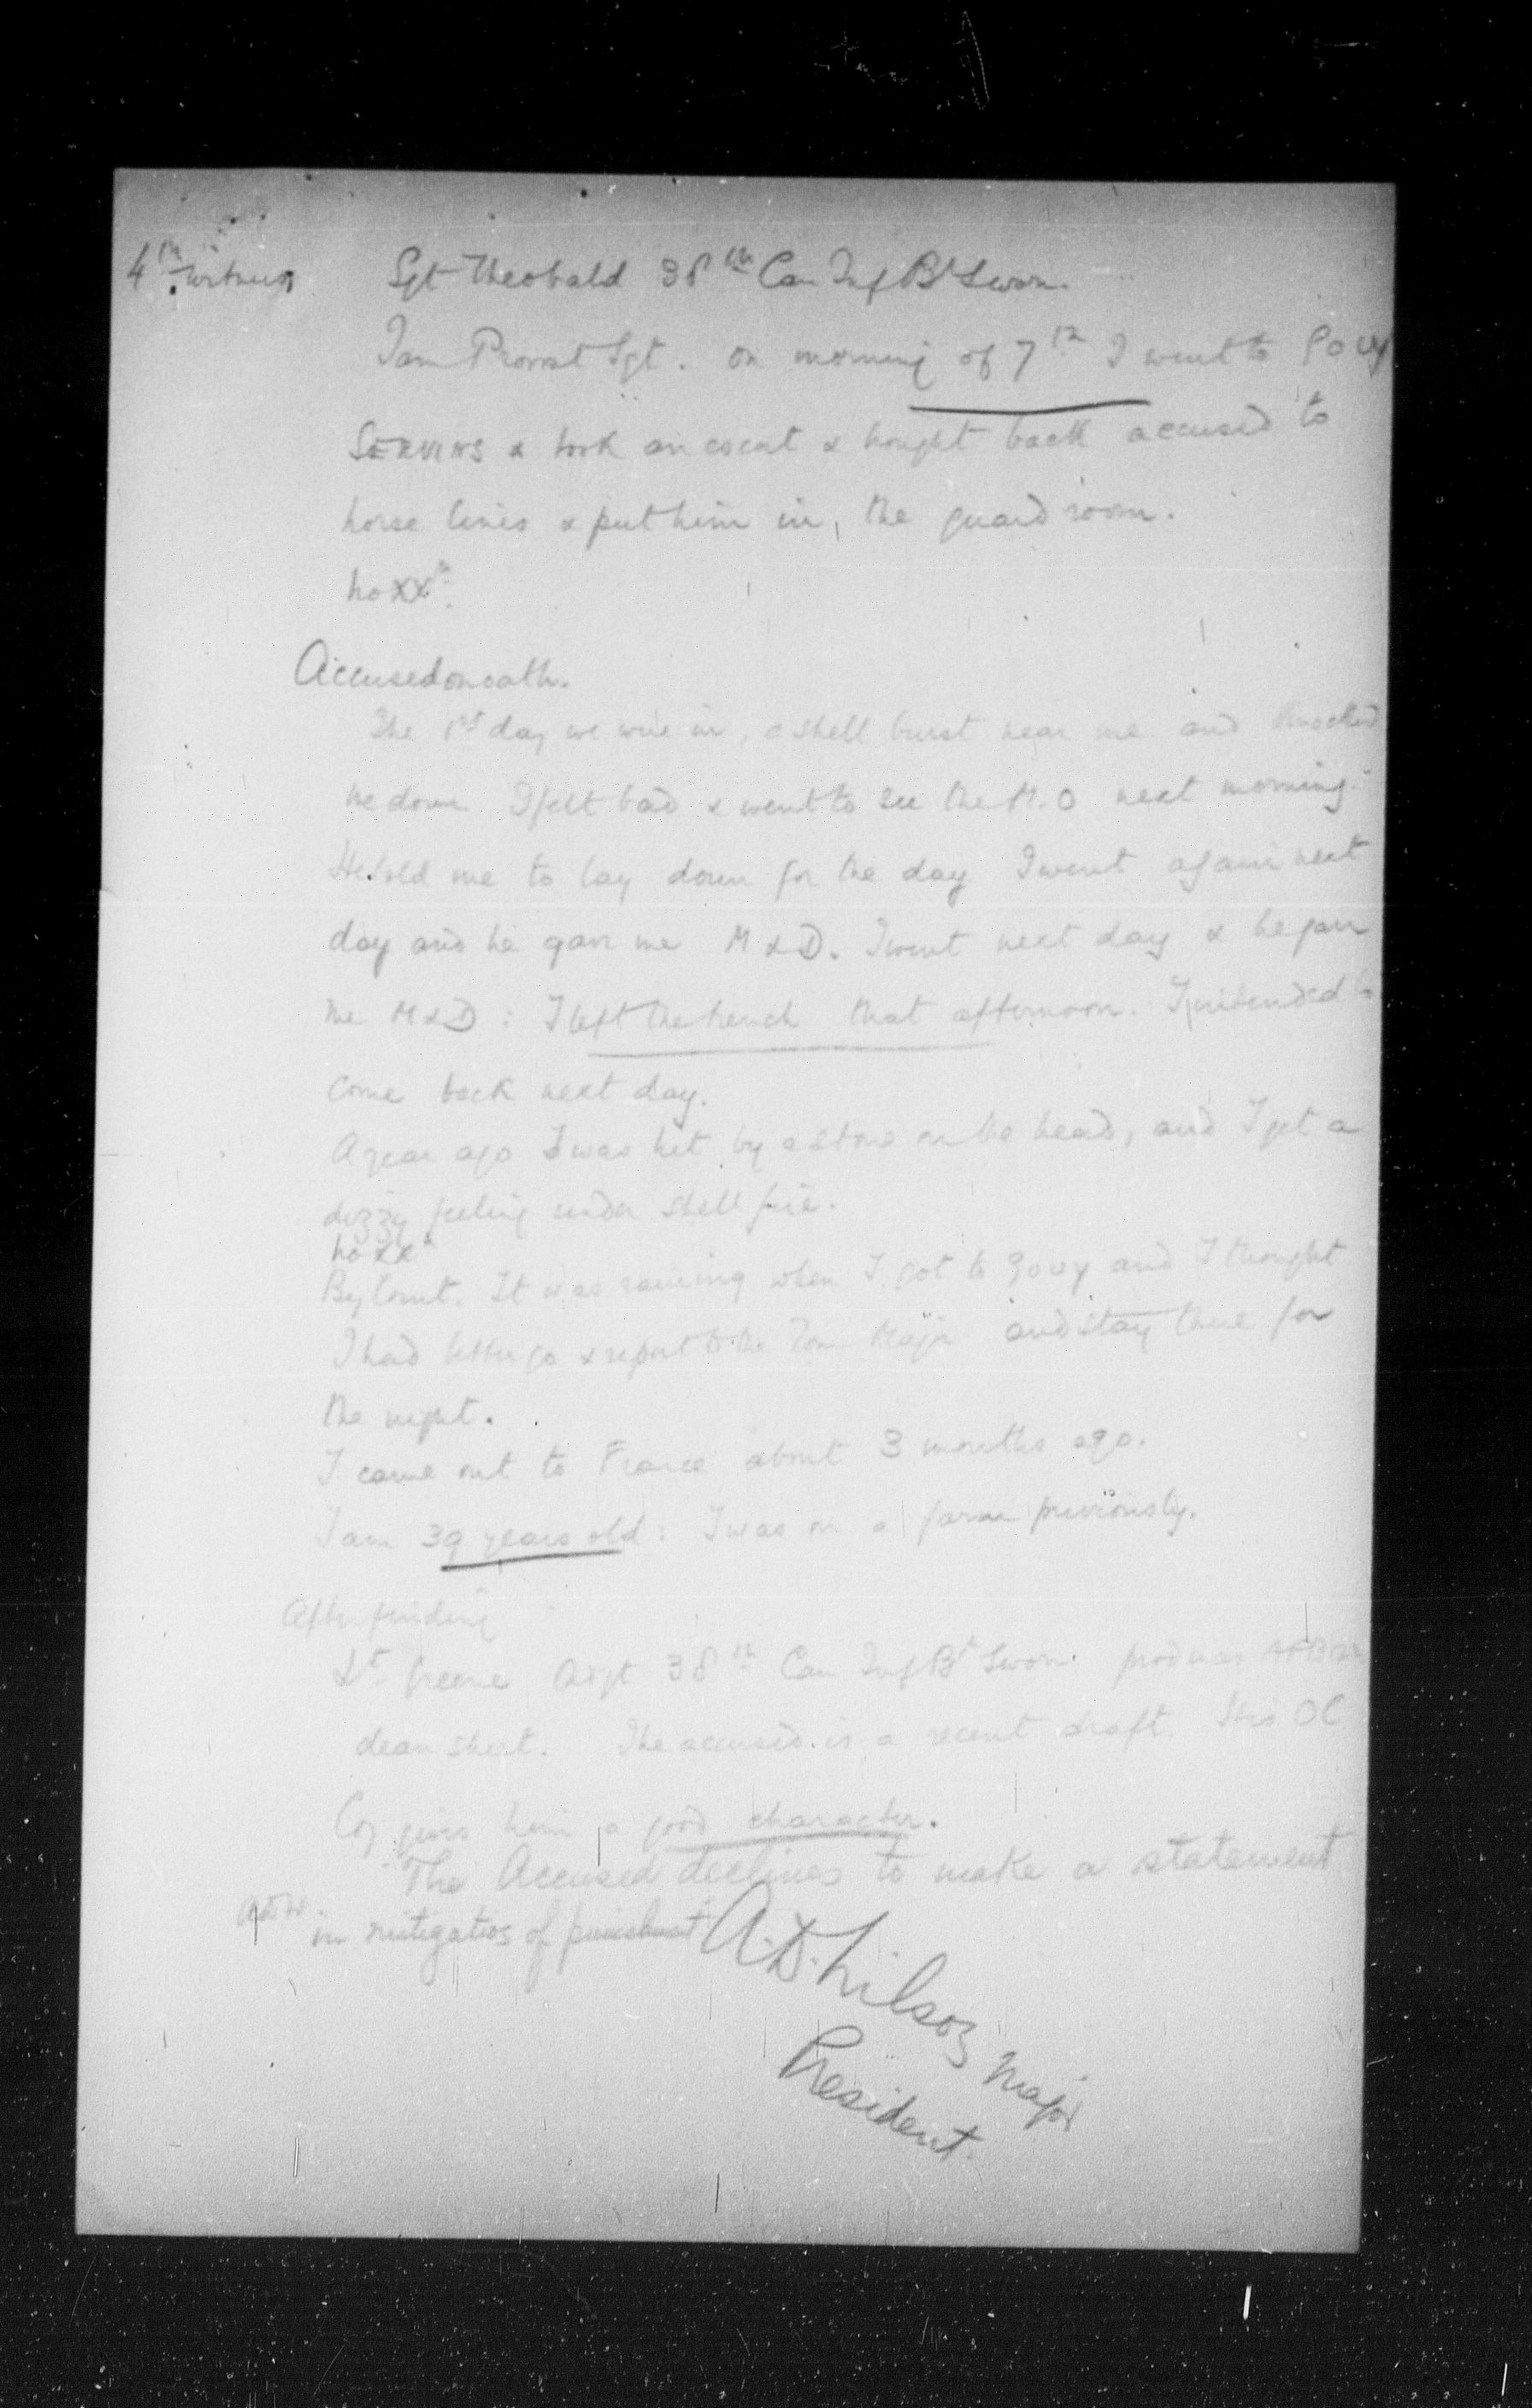 4th Witness Sgt Theobald 38th Can Inf Bn Sworn.
I am Provost Sgt. On morning of 7th I went to Gouy
SERVINS & took an escort & brought back accused to
horse lines & put him in, the guard room.
no XXn.
Accused on oath.
The 1st day we were in, a shell burst near me and knocked
me down I felt bad & went to see the M.O next morning.
He told me to lay down for the day I went again next
day and he gave me M & D. I went next day & he gave
me M & D : I left the trench that afternoon. I intended to
come back next day.
A year ago I was hit by a stone on the head, and I get a
dizzy feeling under shell fire.
no xxn
By Court. It was raining when I got to Gouy and I thought
I had better go & report to the Town Major and stay there for
the night.
I came out to France about 3 months ago.
I am 39 years old : I was on a farm previously.
After finding
Lt Greene Adjt 38th Can Inf Bn Sworn. produces AFB122
clean sheet. The accused is a recent draft. His OC
Coy gives him a good character.
The Accused declines to make a statement
in mitigation of punishment
Major
President.